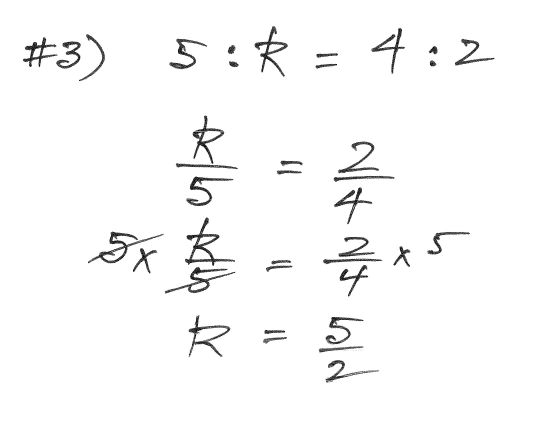 #3) 5 : R = 4 : 2
R/5 = 2/4
5 x R/5 = 2/4 x 5
R = 5/2